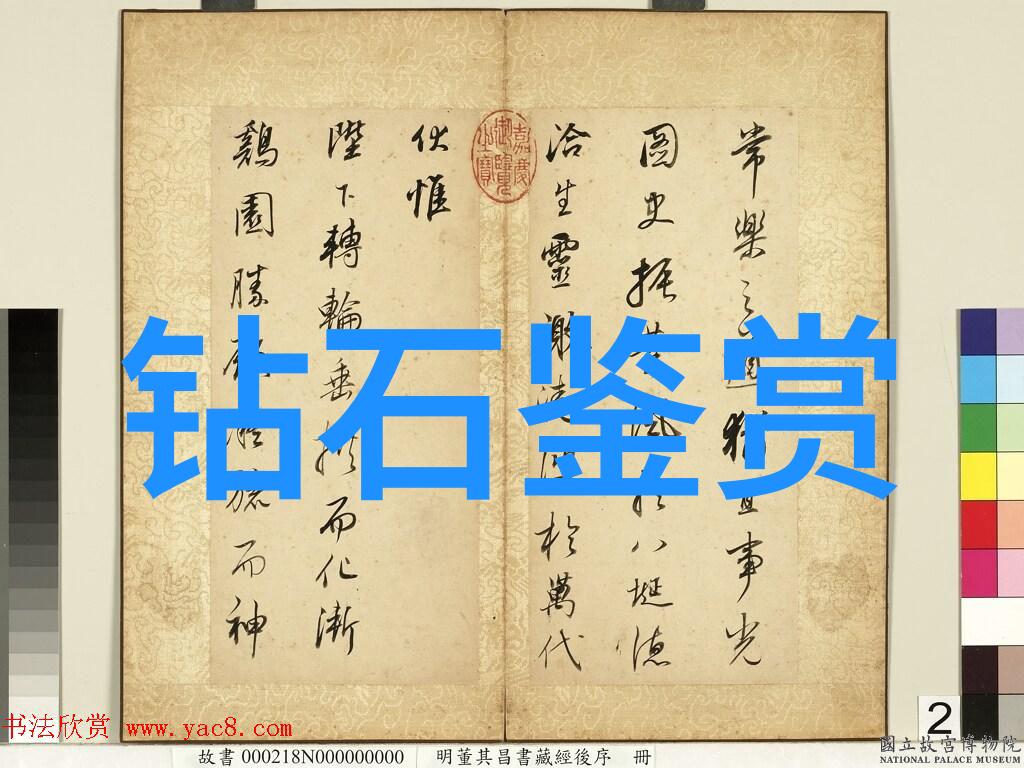 常樂之道猶宣事光
圖史振 風於八埏德
洽生靈 於萬代
伏惟
陛下轉輪垂拱而化漸
鷄園勝 凝旒而神
嘉慶御覽之寶
钻石鉴赏
2
书法欣赏 www.yac8.com
故書 000218N000000000 明董其昌書藏經後序 冊
國立故宮博物院
NATIONAL PALACE MUSEUM